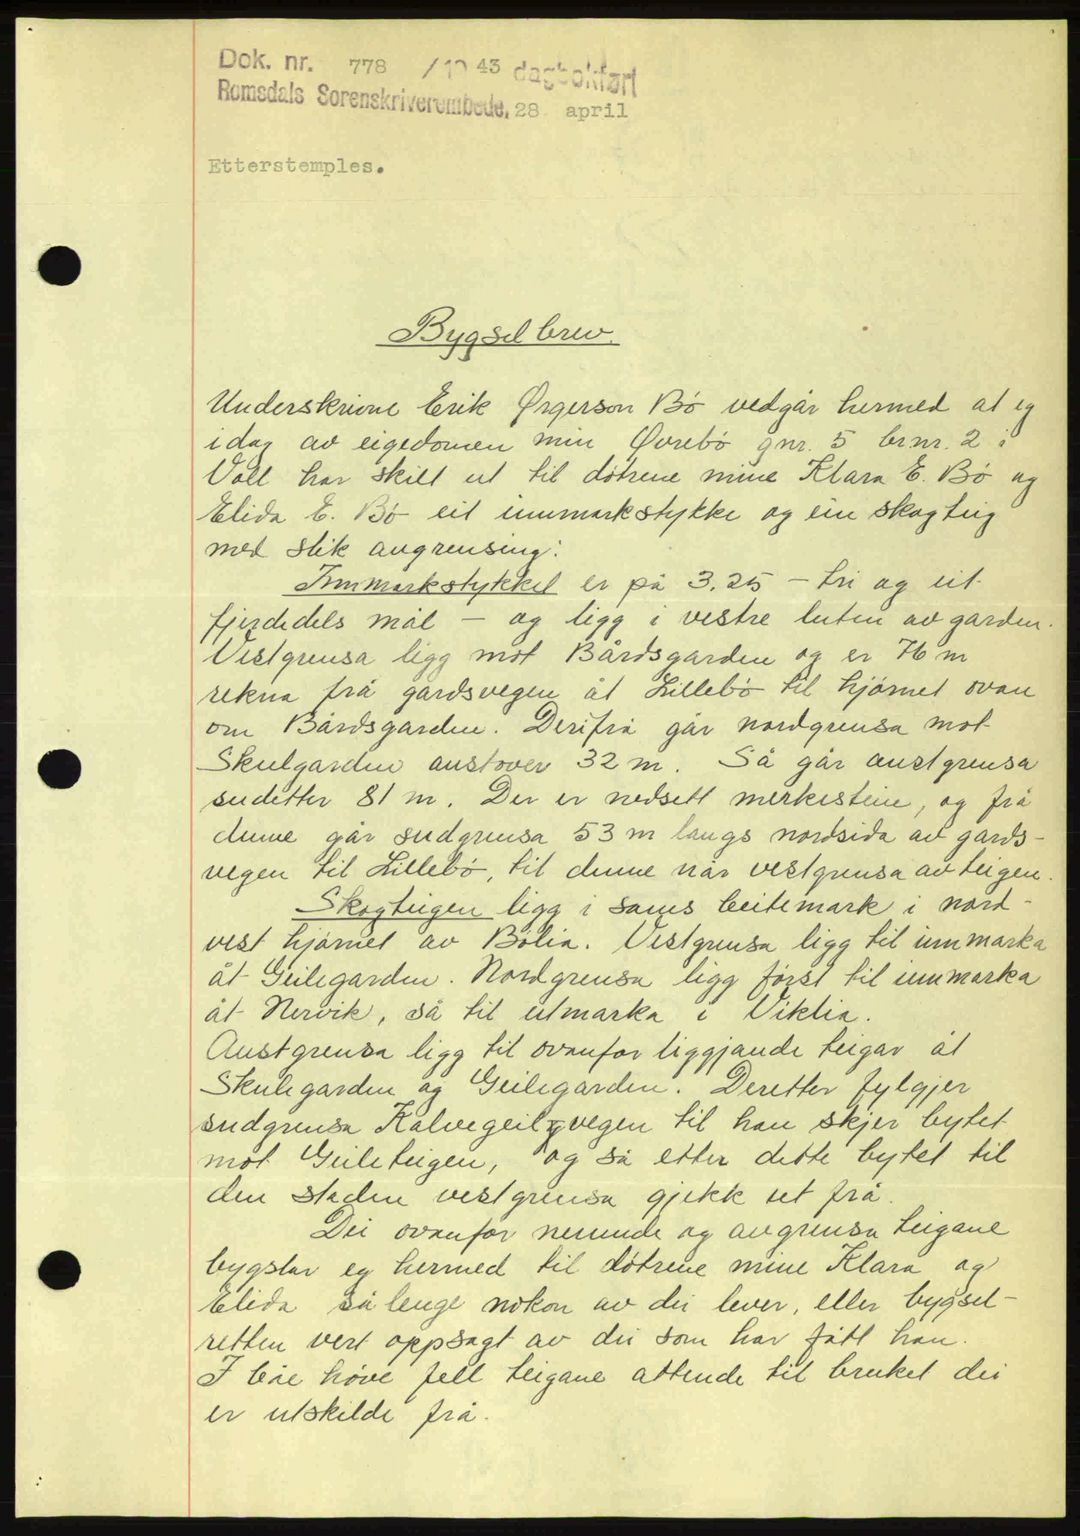 Dok. nr. 778 / 19 43 dagbokført
Romsdals Sorenskriverembede, 28 april
Etterstemples.
Bygselbrev.
Underskrivne Erik Ørgerson Bø vedgår hermed at eg
idag av eigedomen min Øvrebø gnr. 5 brnr. 2 i
Voll har skilt ut til døtrene mine Klara E. Bø og
Elida E. Bø eit innmarkstykke og ein skogteig
med slik avgrensing:
Innmarkstykket er på 3.25 – tri og eit
fjerdedels mål – og ligg i vestre luten av garden.
Vestgrensa ligg mot Bårdsgarden og er 76 m
rekna frå gardsvegen åt Lillebø til hjørnet ovan
om Bårdsgarden. Derifrå går nordgrensa mot
Skulgarden austover 32 m. Så går austgrensa
sudetter 81 m. Der er nedsett merkestein, og frå
denne går sudgrensa 53 m langs nordsida av gards-
vegen til Lillebø, til denne når vestgrensa av teigen.
Skogteigen ligg i sams beitemark i nord-
vest hjørnet av Bølia. Vestgrensa ligg til innmarka
åt Geilegarden. Nordgrensa ligg først til innmarka
åt Nervik, så til utmarka i Viklia.
Austgrensa ligg til ovanfor liggjande teigar åt
Skulegarden og Geilegarden. Deretter fylgjer
sudgrensa Kalvegeilvegen til han skjer bytet
mot Geileteigen, og så etter dette bytet til
den staden vestgrensa gjekk ut frå.
Dei ovanfor nemnde og avgrensa teigane
bygslar eg hermed til døtrene mine Klara og
Elida så lenge nokon av dei lever, eller bygsel-
retten vert oppsagt av dei som har fått han.
I båe høve fell teigane attende til bruket dei
er utskilde frå.